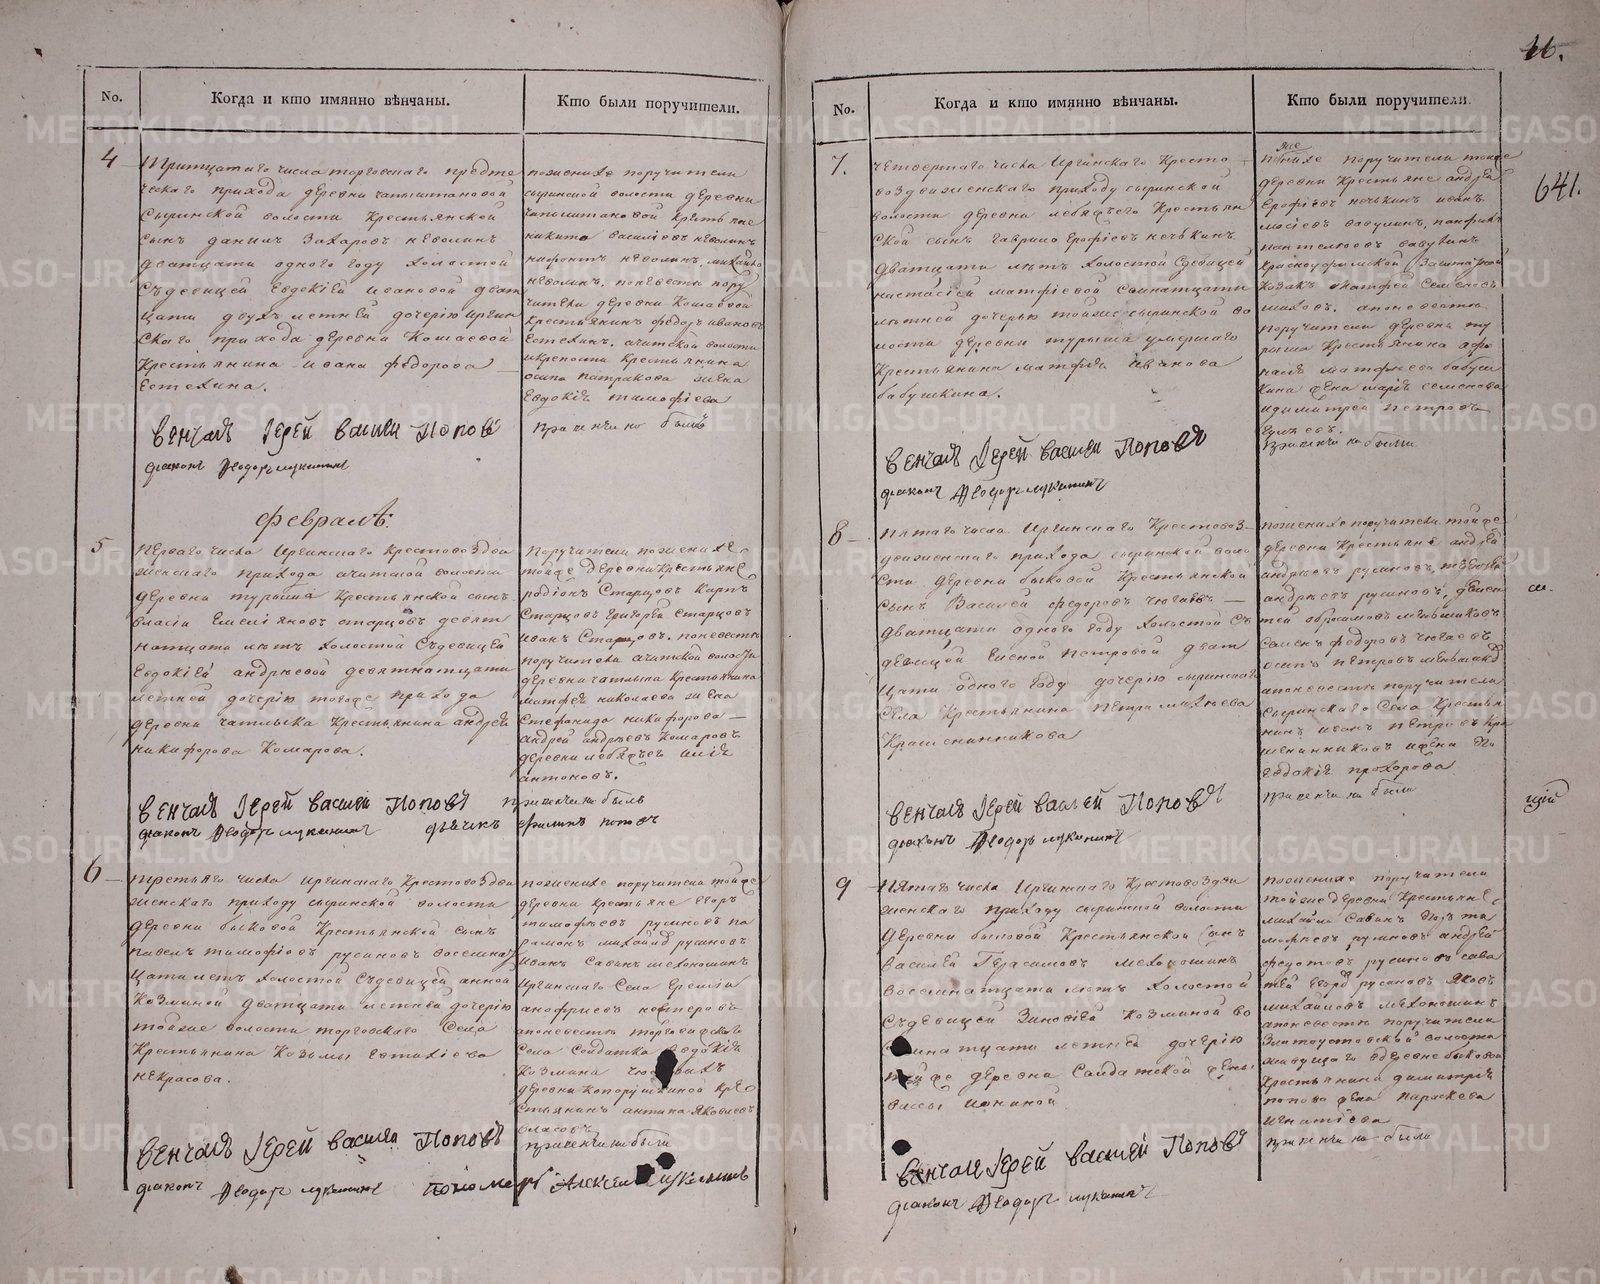 46.
641.
No.
Когда и кто имянно вѣнчаны.
Кто были поручители.
4
Тритцатаго числа торговскаго предте
ческаго прихода деревни
Сыринской волости Крестьянской
сынъ данилъ Захаровъ неволинъ
дватцати одного году холостой
Съдевицей Евдокіей ивановой дват
цати двухъ летней дочерію иргин
скаго прихода деревни Комаевой
Крестьянина ивана федорова
Естехина.
Венчалъ Іерей василей Поповъ
діаконъ Ѳеодоръ лукининъ
поженихе поручители
сыринской волости деревни
крестьяне
никита василіевъ неволинъ
неволинъ. михайло
неволинъ. поневесте пору
чители деревни Комаевой
крестьянинъ федоръ ивановъ
Естехинъ. ачитской волости
крестьянина
осипа патракова жена
Евдокія тимофіева
При венчании были
Февраль.
5
Перваго числа Иргинскаго крестовоздви
женскаго прихода ачитской волости
деревни турыша Крестьянской сынъ
власій Емеліяновъ старцовъ девят
натцати летъ холостой Съдевицей
Евдокіей андреевой девятнатцати
летней дочерію тогоже прихода
деревни чатлыка Крестьянина андрея
никифорова Комарова.
Венчалъ Іерей василей Поповъ
діаконъ Ѳеодоръ лукининъ дьячекъ
Поручители поженихе
тойже деревни крестьяне
родіонъ Старцовъ Карпъ
Старцовъ григорей старцовъ
иванъ Старцовъ. поневесте
поручители ачитской волости
деревни чатлыка крестьянина
матфея николаева жена
Стефанида никифорова
андрей андреевъ Комаровъ
деревни лебяжьей илія
антоновъ.
При венчании былъ
филипъ поповъ
6
третьяго числа иргинскаго Крестовоздви
женскаго приходу сыринской волости
деревни быковой Крестьянской сынъ
павелъ тимофіевъ русиновъ восемнат
цати летъ холостой Съдевицей анной
Козминой дватцати летней дочерію
тойже волости торговскаго Села
Крестьянина Козмы
некрасова.
Венчалъ Іерей василей Поповъ
діаконъ Ѳеодоръ лукининъ пономарь Алексей Лукининъ
поженихе поручители тойже
деревни крестьяне егоръ
тимофеевъ русиновъ па
рамонъ михайлъ русиновъ
иванъ Савинъ мехоношинъ
Иргинскаго Села Еремій
анофріевъ
апоневесте торговижскаго
Села Солдатка Евдокія
Козмина
деревни кре
стьянинъ антипа Яковлевъ
власовъ
При венчании были
No.
Когда и кто имянно вѣнчаны.
Кто были поручители.
7.
четвертаго числа Иргинскаго Кресто
воздвиженскаго приходу сыринской
волости деревни лебяжьего Крестьян
ской сынъ гаврило Ерофіевъ нечкинъ
дватцати летъ холостой Съдевицей
настасіей матфіевой Семнатцати
летней дочерью тойже сыринской во
лости деревни турыша умершаго
Крестьянина матфія иванова
бабушкина.
Венчалъ Іерей василей Поповъ
діаконъ Ѳеодоръ лукининъ
поручители тойже
деревни Крестьяне андрей
Ерофіевъ нечкинъ иванъ
панфилъ
пантелеевъ бабушкинъ
Красноуфимской Заштатной
козакъ матфей Семеновъ
апоневесте
поручители деревни ту
рыша Крестьянина афо
насія матфеева бабуш
кина жена марія семенова
идимитрей петровъ
При венчании были
8
Пятаго числа Иргинскаго Крестовоз
движенскаго прихода сыринской воло
сти деревни быковой Крестьянской
сынъ Василей федоровъ чюгаевъ
дватцати одного году холостой Съ
девицей Еленой петровой дват
цати одного году дочерію сыринскаго
села Крестьянина петра михеева
Крашенинникова
Венчалъ Іерей василей Поповъ
діаконъ Ѳеодоръ лукининъ
поженихе поручители тойже
деревни Крестьяне андрей
андреевъ русиновъ,
андреевъ русиновъ,
меньшиковъ
Семенъ федоровъ чюгаевъ
осипъ петровъ
апоневесте поручители
сыринскаго Села Крестья
нинъ иванъ петровъ Кра
шенинниковъ ижена его
Евдокія прохорова
При венчании были
9
Пятаго числа Иргинскаго Крестовоздви
женскаго приходу сыринской волости
деревни быковой Крестьянской сынъ
василей Герасимовъ мехоношинъ
восемнатцати летъ холостой
Съдевицей Зиновіей Козминой во
семнатцати летней дочерію
тойже деревни Салдатской жены
иониной
Венчалъ Іерей василей Поповъ
діаконъ Ѳеодоръ лукининъ
поженихе поручители
тойже деревни Крестьяне
михайло Савинъ
русиновъ андрей
федотовъ русиновъ сава
тей русиновъ Яковъ
михайловъ мехоношинъ
апоневесте поручители
Златоустовской волости
живущаго вдеревне быковой
Крестьянина димитрія
попова жена параскева
игнатіева
При венчании были
METRIKI.GASO-URAL.RU